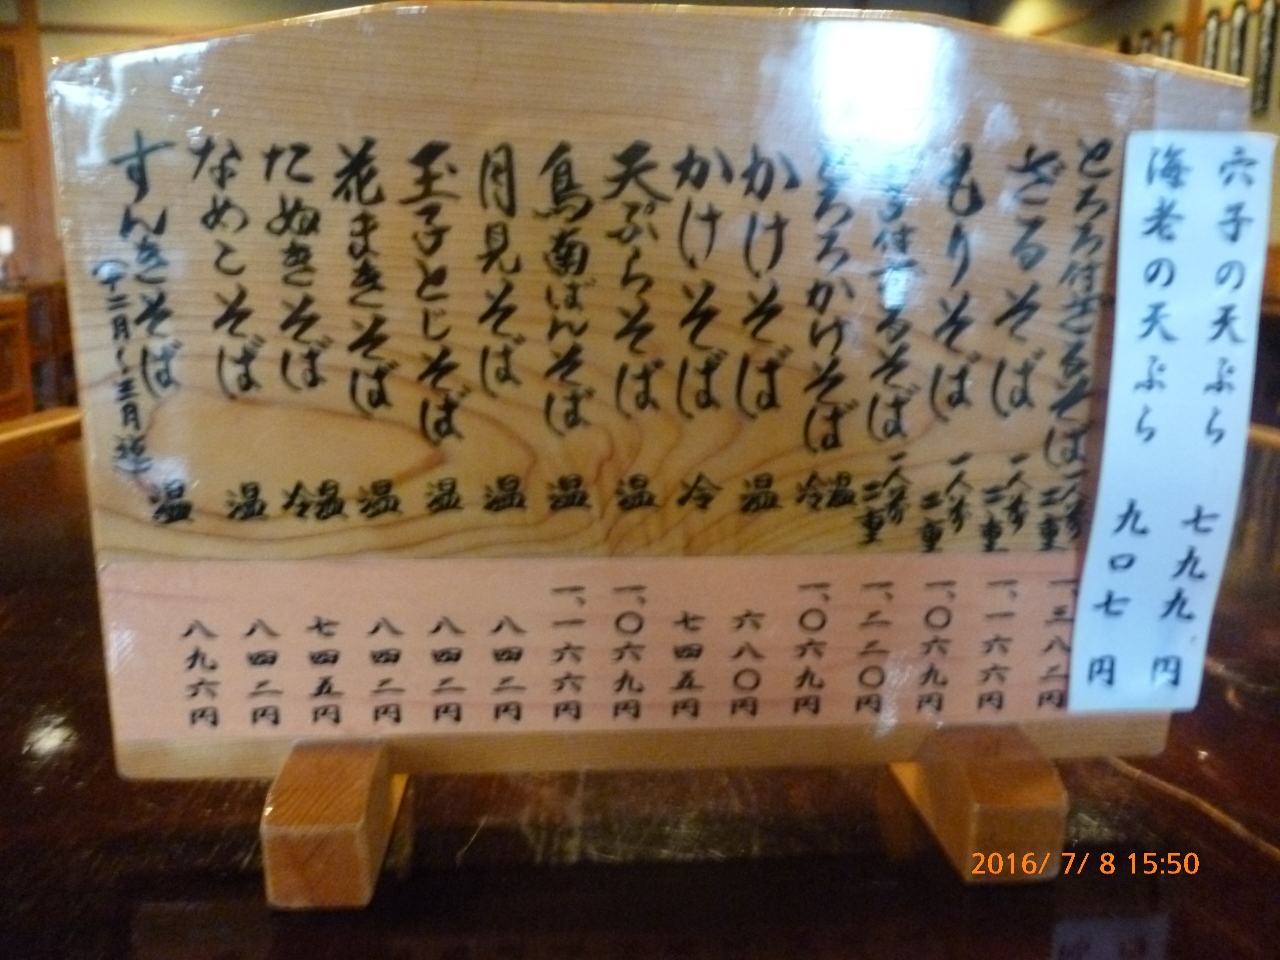 穴子の天ぷら 七九九円
海老の天ぷら 九〇七円
とろろ付ざるそば 一人前 二重 一、三八二円
ざるそば 一人前 二重 一、一六六円
もりそば 一人前 二重 一、〇六九円
そば 一人前 二重 一、二二〇円
とろろかけそば 冷温 一、〇六九円
かけそば 温 六八〇円
かけそば 冷 七四五円
天ぷらそば 温 一、〇六九円
鳥南ばんそば 温 一、一六六円
月見そば 温 八四二円
玉子とじそば 温 八四二円
花まきそば 温 八四二円
たぬきそば 冷温 七四五円
なめこそば 温 八四二円
すんきそば 温 八九六円
(十二月〜三月迄)
2016/ 7/ 8 15:50